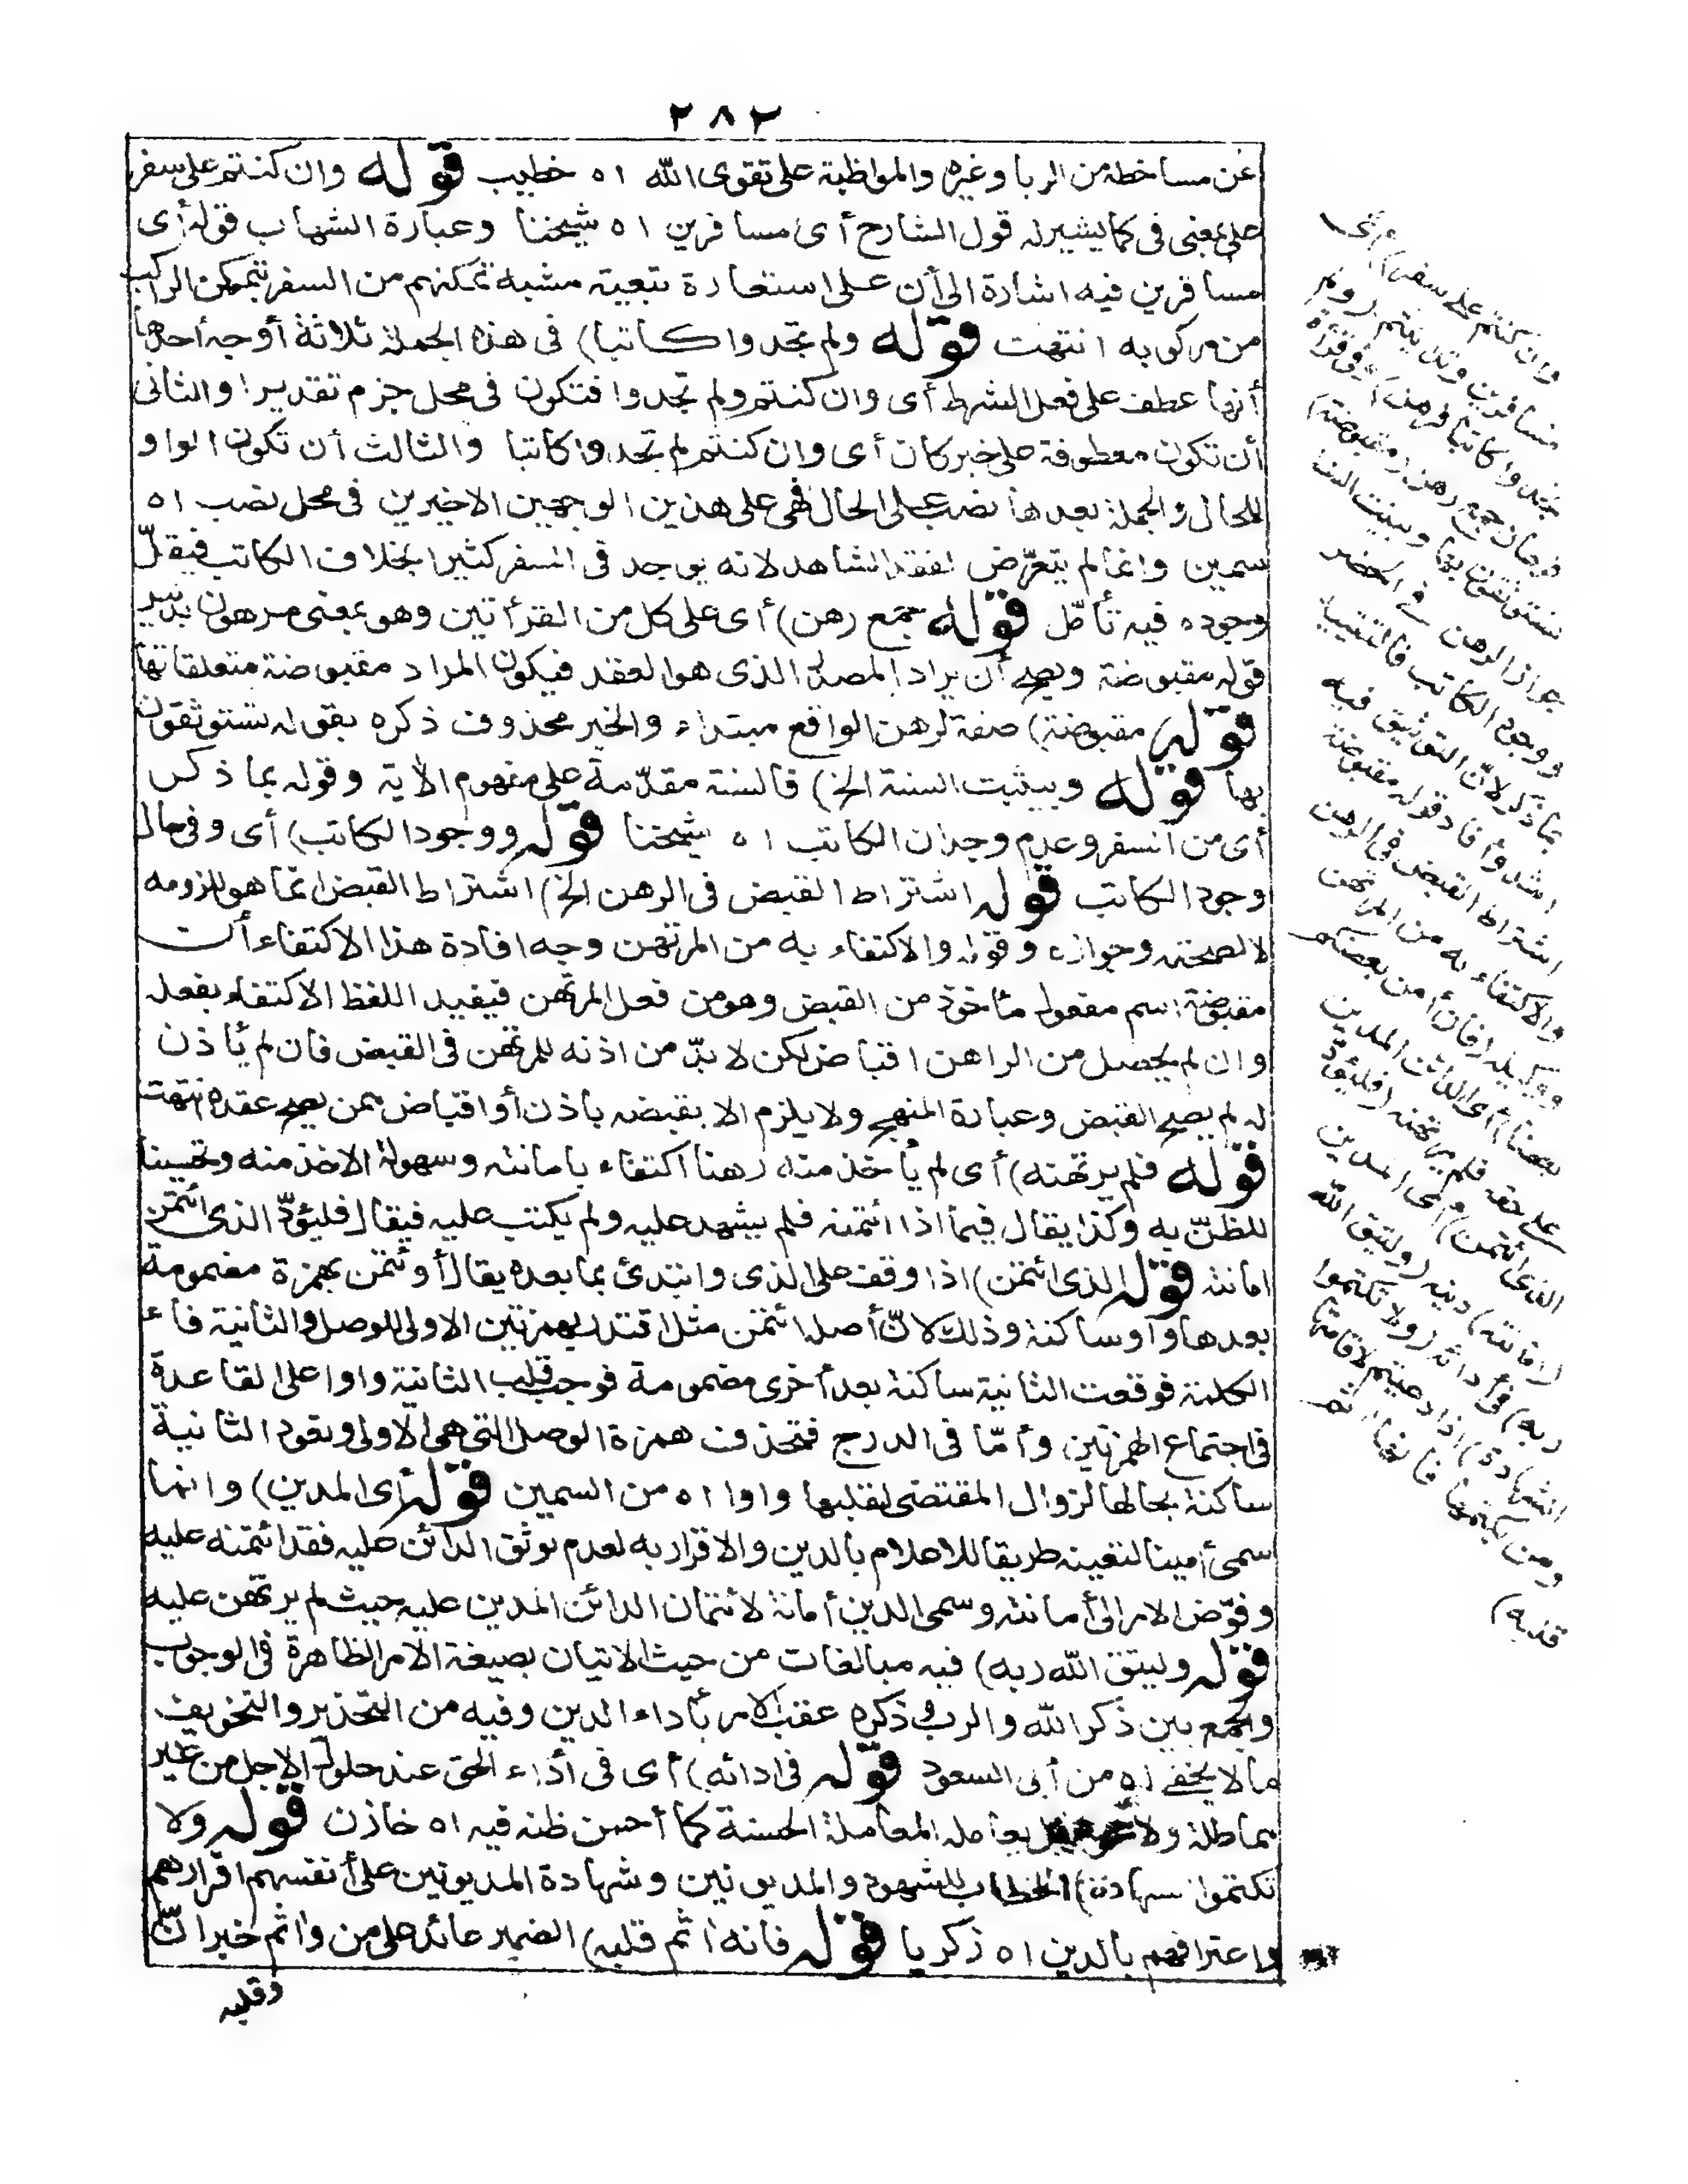 ٢٨٢
عن مساخطه من الربا وغيره والمواظبة على تقوى الله اه خطيب قوله وان كنتم على سفر
على بمعنى فى كما يشير له قول الشارح أى مسافرين اه شيخنا وعبارة الشهاب قوله أى
مسافرين فيه اشارة الى أن على استعارة تبعية مشبه تمكنهم من السفر بتمكن الراكب
من مركوبه انتهت قوله ولم تجدوا كاتبا) فى هذه الجملة ثلاثة أوجه أحدها
أنها عطف على فعل الشرط أى وان كنتم ولم تجدوا فتكون فى محل جزم تقديرا والثانى
أن تكون معطوفة على خبر كان أى وان كنتم لم تجدوا كاتبا والثالث أن تكون الواو
للحال والجملة بعدها نصب على الحال فهى على هذين الوجهين الاخيرين فى محل نصب اه
سمين وانما لم يتعرّض لفقد الشاهد لانه يوجد فى السفر كثيرا بخلاف الكاتب فيقلّ
وجوده فيه تأمّل قوله جمع رهن) أى على كل من القرأتين وهو بمعنى مرهون بدليل
قوله مقبوضة ويصح أن يراد المصدر الذى هو العقد فيكون المراد مقبوضة متعلقاتها
قوله مقبوضة) صفة لرهن الواقع مبتداء والخبر محذوف ذكره بقوله تستوثقون
بها قوله وبينت السنة الخ) فالسنة مقدّمة على مفهوم الآية وقوله بما ذكر
أى من السفر وعدم وجدان الكاتب اه شيخنا قوله ووجود الكاتب) أى وفى حال
وجود الكاتب قوله اشتراط القبض فى الرهن الخ) اشتراط القبض انما هو للزومه
لا لصحته وجوازه وقوله والاكتفاء به من المرتهن وجه افادة هذا الاكتفاء أن
مقبوضة اسم مفعول مأخوذ من القبض وهو من فعل المرتهن فيفيد اللفظ الاكتفاء بفعله
وان لم يحصل من الراهن اقباض لكن لا بدّ من اذنه للمرتهن فى القبض فان لم يأذن
له لم يصح القبض وعبارة المنهج ولا يلزم الا بقبضه باذن أو اقباض ممن يصح عقده انتهت
قوله فلم يرتهنه) أى لم يأخذ منه رهنا اكتفاء بامانته وسهولة الاخذ منه وتحسينا
للظنّ به وكذا يقال فيما اذا ائتمنه فلم يشهد عليه ولم يكتب عليه فيقال فليؤدّ الذى ائتمن
امانته قوله الذى ائتمن) اذا وقف على الذى وابتدئ بما بعده يقال أوتمن بهمزة مضمومة
بعدها واو ساكنة وذلك لانّ أصله ائتمن مثل اقتدر بهمزتين الاولى للوصل والثانية فاء
الكلمة فوقعت الثانية ساكنة بعد أخرى مضمومة فوجب قلب الثانية واوا على القاعدة
فى اجتماع الهمزتين وأمّا فى الدرج فتحذف همزة الوصل التى هى الاولى وتعود الثانية
ساكنة بحالها لزوال المقتضى لقلبها واوا اه من السمين قوله أى المدين) وانما
سمى أمينا لتعينه طريقا للاعلام بالدين والاقرار به لعدم توثق الدائن عليه فقد ائتمنه عليه
وفوّض الامر الى أمانته وسمى الدين أمانة لائتمان الدائن المدين عليه حيث لم يرتهن عليه
قوله وليتق الله ربه) فيه مبالغات من حيث الاتيان بصيغة الامر الظاهرة فى الوجوب
والجمع بين ذكر الله والرب وذكره عقب الامر بأداء الدين وفيه من التحذير والتخويف
ما لا يخفى اه من أبى السعود قوله فى ادائه) أى فى أداء الحق عند حلول الاجل من غير
مماطلة ولا بل يعامله المعاملة الحسنة كما أحسن ظنه فيه اه خازن قوله ولا
تكتموا شهادة) الخطاب للشهود والمديونين وشهادة المديونين على أنفسهم اقرارهم
واعترافهم بالدين اه زكريا قوله فانه اثم قلبه) الضمير عائد على من واثم خبر انّ
وقلبه
وان كنتم على سفر) أى
مسافرين وتداينتم (ولم
تجدوا كاتبا فرهن) وفى قراءة
فرهان جمع رهن (مقبوضة)
تستوثقون بها وبينت السنة
جواز الرهن فى الحضر
ووجود الكاتب فالتقييد
بما ذكر لانّ التوثيق فيه
أشد وأفاد قوله مقبوضة
اشتراط القبض فى الرهن
والاكتفاء به من المرتهن
ووكيله (فان أمن بعضكم
بعضا) أى الدائن المدين
على حقه فلم يرتهنه (فليؤدّ
الذى ائتمن) أى المدين
(امانته) دينه (وليتق الله
ربه) فى أدائه (ولا تكتموا
الشهادة) اذا دعيتم لاقامتها
(ومن يكتمها فانه اثم
قلبه)